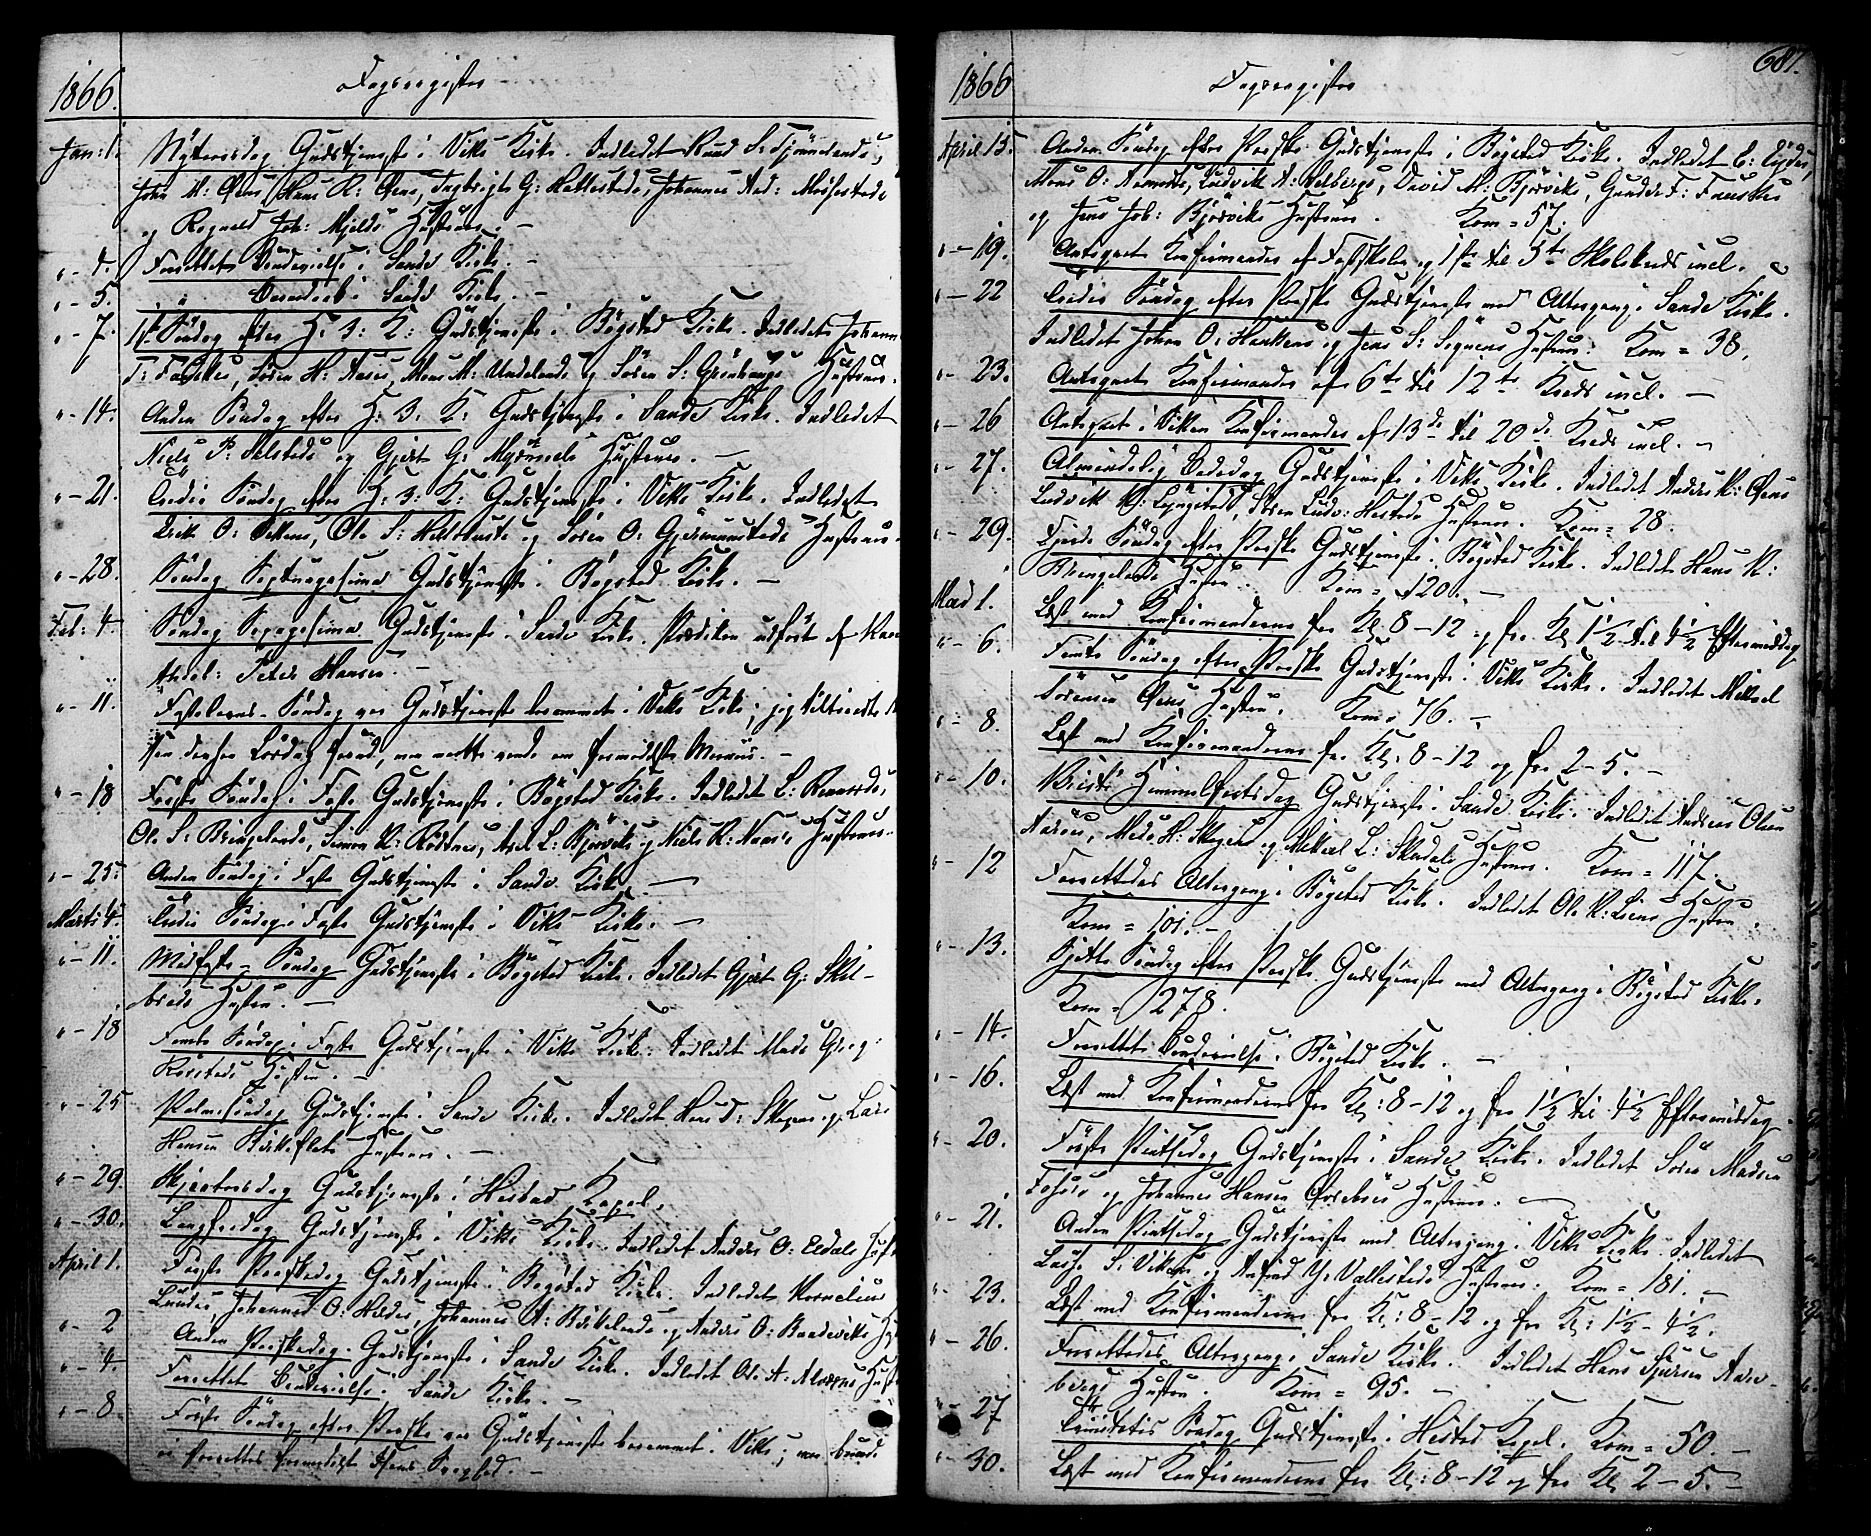 1866. Dagsregister
Jan: 1. Nytaarsdag Gudstjeneste i Viks Kirke. Indledet Knud S: Tjönnelands,
John M: Öens, Hans K: Öens, Ingbrigt G: Hattesteds, Johannes And: Masfesteds
og Rognald Joh: Mjelds Hustruer. —
" - 4. Forrettet Brudevielse i Sande Kirke. —
" - 5. Barnedaab i Sande Kirke. —
" - 7. 1ste Söndag efter H. 3: K: Gudstjeneste i Bygstad Kirke. Indledet Johann
T: Fauskes, Sören H: Aases, Mons M: Undelands og Sören S: Grönhaugs Hustruer.
" - 14. Anden Söndag efter H: 3: K: Gudstjeneste i Sande Kirke. Indledet
Niels P: Selsteds og Gjert G: Hustruer. —
" - 21. Tredie Söndag efter H: 3: K: Gudstjeneste i Viks Kirke. Indledet
Erik O: Ole S: og Sören O: Gjermunsteds Hustruer.
" - 28. Söndag Septuagesima Gudstjeneste i Bygstad Kirke. —
Feb: 4. Söndag Sexagesima Gudstjeneste i Sande Kirke. Prædiken udfört af
theol: Peter Hansen. —
" - 11. Fastelavns-Söndag var Gudstjeneste berammet i Viks Kirke; jeg tiltraadte
Lördag men maatte vende om formedelst —
" - 18 Förste Söndag i Faste Gudstjeneste i Bygstad Kirke. Indledet L:
Ole S: Bringelands, Simon K: Rödsnes, Axel L: Bjørviks og Niels K: Hustruer.
" - 25. Anden Söndag i Faste Gudstjeneste i Sande Kirke. —
Marts 4. Tredie Söndag i Faste Gudstjeneste i Viks Kirke. —
" - 11. Midfaste-Söndag Gudstjeneste i Bygstad Kirke. Indledet Gjert G: Skil-
breds Hustru. —
" - 18 Femte Söndag i Faste Gudstjeneste i Viks Kirke. Indledet Mads Greg:
Rörsteds Hustru. —
" - 25 Palmesöndag Gudstjeneste i Sande Kirke. Indledet Hans D: og Lars
Hansen Birkeflots Hustruer. —
" - 29. Skjærtorsdag Gudstjeneste i Hestad Kapel.
" - 30. Langfredag Gudstjeneste i Viks Kirke. Indledet Anders O: Eldals
April 1. Förste Paaskedag Gudstjeneste i Bygstad Kirke. Indledet Kornelius
Lundes, Johannes O: Hildes, Johannes A: Birkelands og Anders O:
" - 2 Anden Paaskedag. Gudstjeneste i Sande Kirke. Indledet Ole A:
" - 4. Forrettet Brudevielse i Sande Kirke. —
" - 8. Förste Söndag efter Paaske var Gudstjeneste berammet i Viks; men
ei forrettet formedelst —
1866 Dagsregister 687.
April 15. Anden Söndag efter Paaske Gudstjeneste i Bygstad Kirke. Indledet E:
Mons O: Ludvik A: David M: Bjørviks, Gunder T: Fauskes
og Jens Joh: Bjørviks Hustruer. Kom = 57.
" - 19. Antegnet Konfirmander af Fastskolen og 1ste til 5te Skolekreds incl. —
" - 22 Tredie Söndag efter Paaske Gudstjeneste med Altergang i Sande Kirke.
Indledet Johan O: Haukens og Jens S: Hustruer. Kom = 38.
" - 23. Antegnet Konfirmander af 6te til 12te Kreds incl. —
" - 26 Antegnet i Viken Konfirmander af 13de til 20de Kreds incl. —
" - 27. Almindelig Bededag Gudstjeneste i Viks Kirke. Indledet Anders K: Öens
Ludvik O: Sören Ludv: Hestads Hustruer. Kom = 28.
" - 29. Fjerde Söndag efter Paaske Gudstjeneste i Bygstad Kirke. Indledet Hans K:
Bringelands Hustru. Kom = 120. —
Mai 1. Læst med Konfirmanderne fra Kl 8 - 12 og fra Kl 1½ til 4½ Eftermiddag
" - 6. Femte Söndag efter Paaske Gudstjeneste i Viks Kirke. Indledet Mikkel
Sörensen Öens Hustru. Kom = 76. —
" - 8. Læst med Konfirmanderne fra Kl: 8 - 12 og fra 2 - 5. —
" - 10. Kristi Himmelfartsdag Gudstjeneste i Sande Kirke. Indledet Andreas Olsen
Mads H: og Mikkel L: Hustruer. Kom = 117.
" - 12 Forrettedes Altergang i Bygstad Kirke. Indledet Ole K: Liens Hustru.
Kom = 101. —
" - 13. Sjette Söndag efter Paaske Gudstjeneste med Altergang i Bygstad Kirke.
Kom = 278.
" - 14. Forrettet Brudevielse i Bygstad Kirke. —
" - 16. Læst med Konfirmanderne fra Kl: 8 - 12 og fra 1½ til 4½ Eftermiddag.
" - 20. Förste Pintsedag Gudstjeneste i Sande Kirke. Indledet Sören Madsen
og Johannes Hansen Hustruer. —
" - 21. Anden Pintsedag Gudstjeneste med Altergang i Viks Kirke. Indledet
Lasse S: Vikens og Anfind Y: Vallesteds Hustruer. Kom = 181. —
" - 23. Læst med Konfirmanderne fra Kl: 8 - 12 og fra Kl: 1½ - 4½.
" - 26. Forrettedes Altergang i Sande Kirke. Indledet Hans Sjursen
bergs Hustru. Kom = 95. —
" - 27 Trinitatis Söndag Gudstjeneste i Hestad Kapel. Kom = 50. —
" - 30. Læst med Konfirmanderne fra Kl: 8 - 12 og fra Kl 2 - 5. —